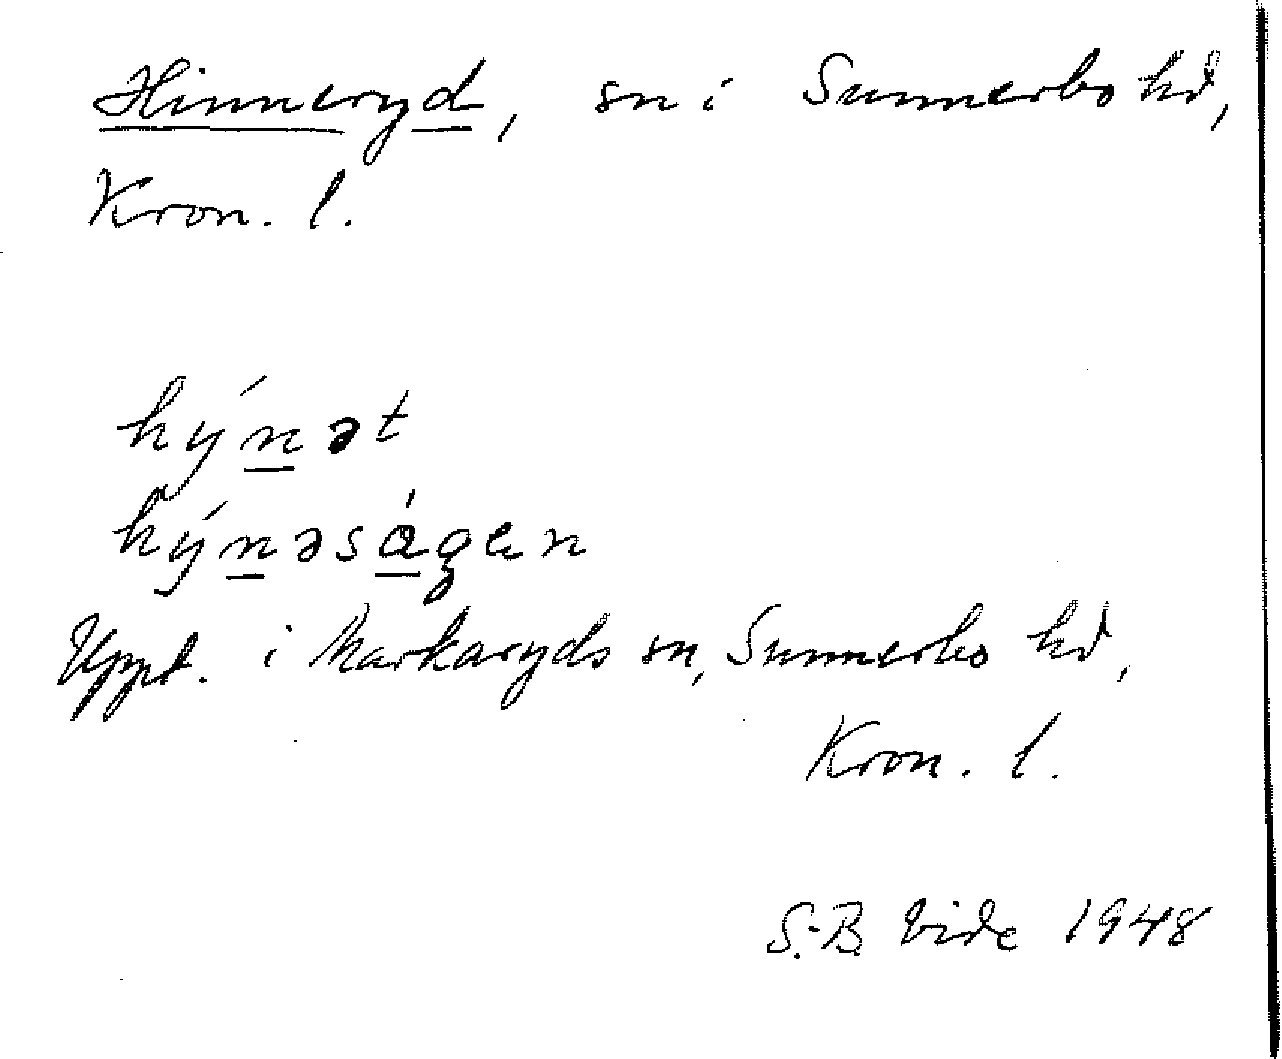 Hinneryd, sn i Sunnerbo hd,
Kron. l.
hýnət
hýnəságen
Uppt. i Markaryds sn, Sunnerbo hd,
Kron. l.
S.-B. Vide 1948